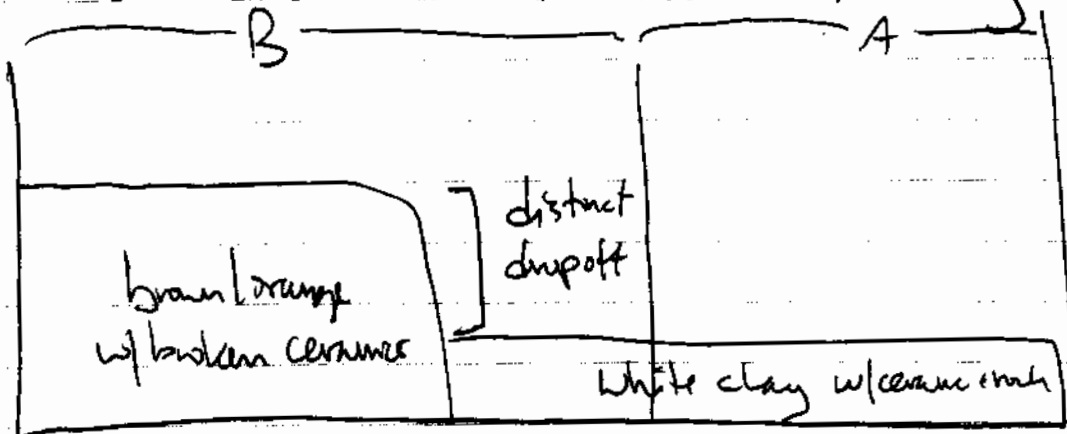 B A
distinct
dropoff
brown/orange
w/ broken ceramics
white clay w/ceramic + rock